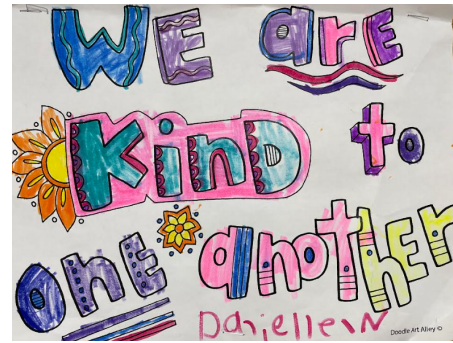 WE are
KinD to
onE anothEr
Danielle W
Doodle Art Alley ©